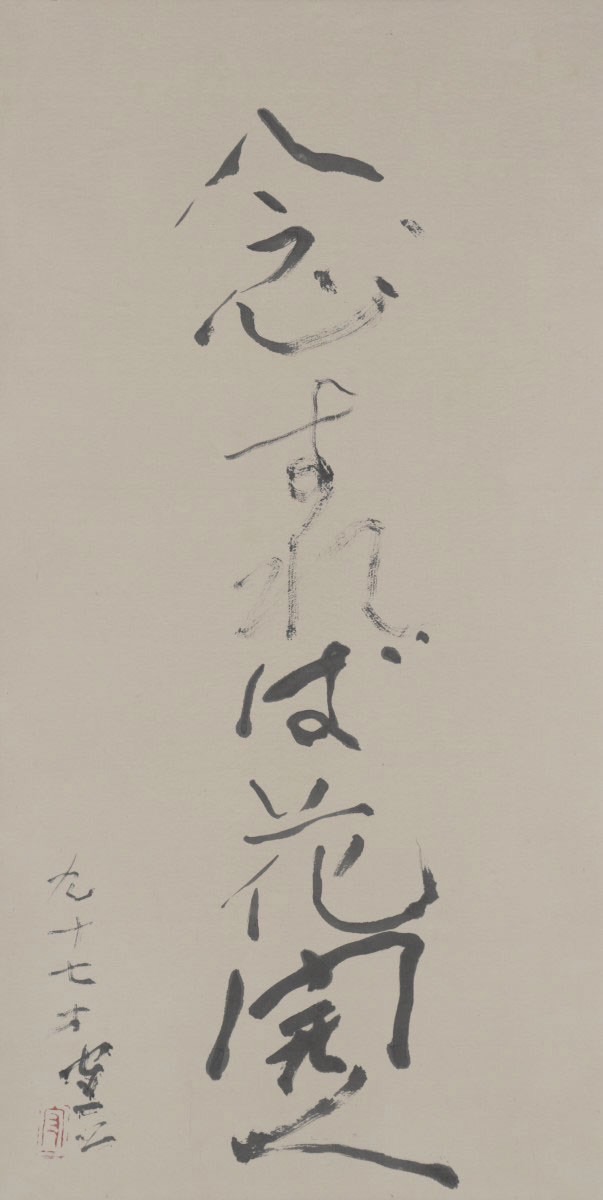 念すれば花開く
九十七才